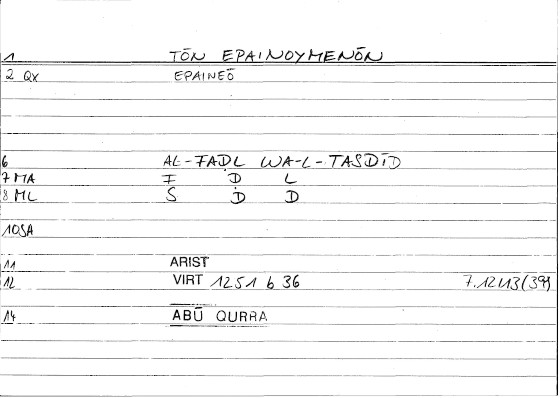 1 TŌN EPAINOYMENŌN
2 QX EPAINEŌ
6 AL-FADL WA-L-TASDĪD
7 MA F Ḍ L
8 ML S D D
10 SA
11 ARIST
12 VIRT 1251 b 36 7.12U13(39)
14 ABŪ QURRA